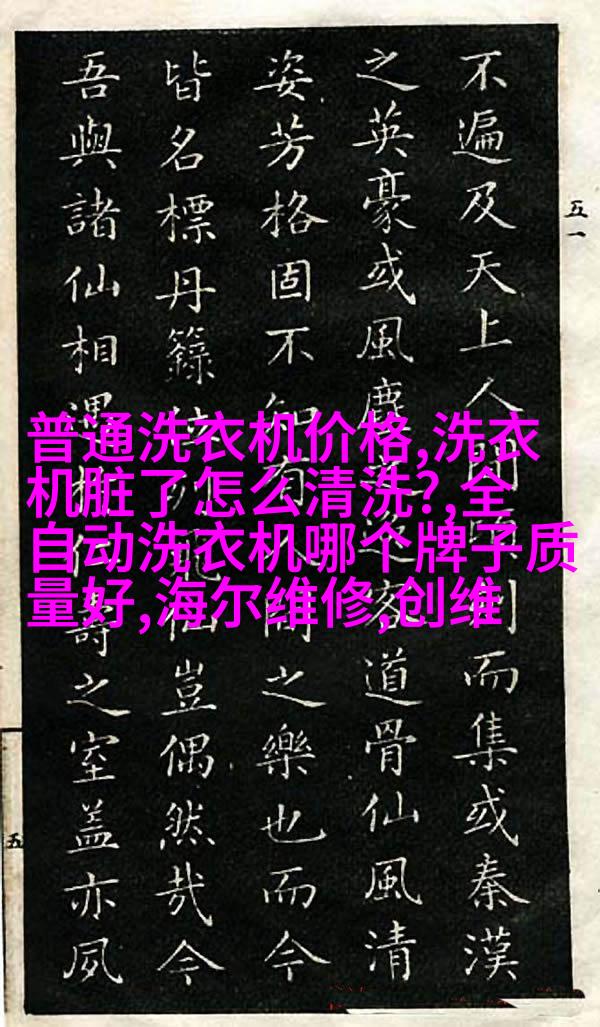 五一
不遍及天上人間刻而集或秦漢
之英豪或風塵客道骨仙風清
姿芳格固不知有間之樂也而今
皆名標丹籙仙豈偶然哉今
吾與諸仙相遇壽之室蓋亦夙
五
普通洗衣机价格,洗衣
机脏了怎么清洗?,全
自动洗衣机哪个牌子质
量好,海尔维修,创维